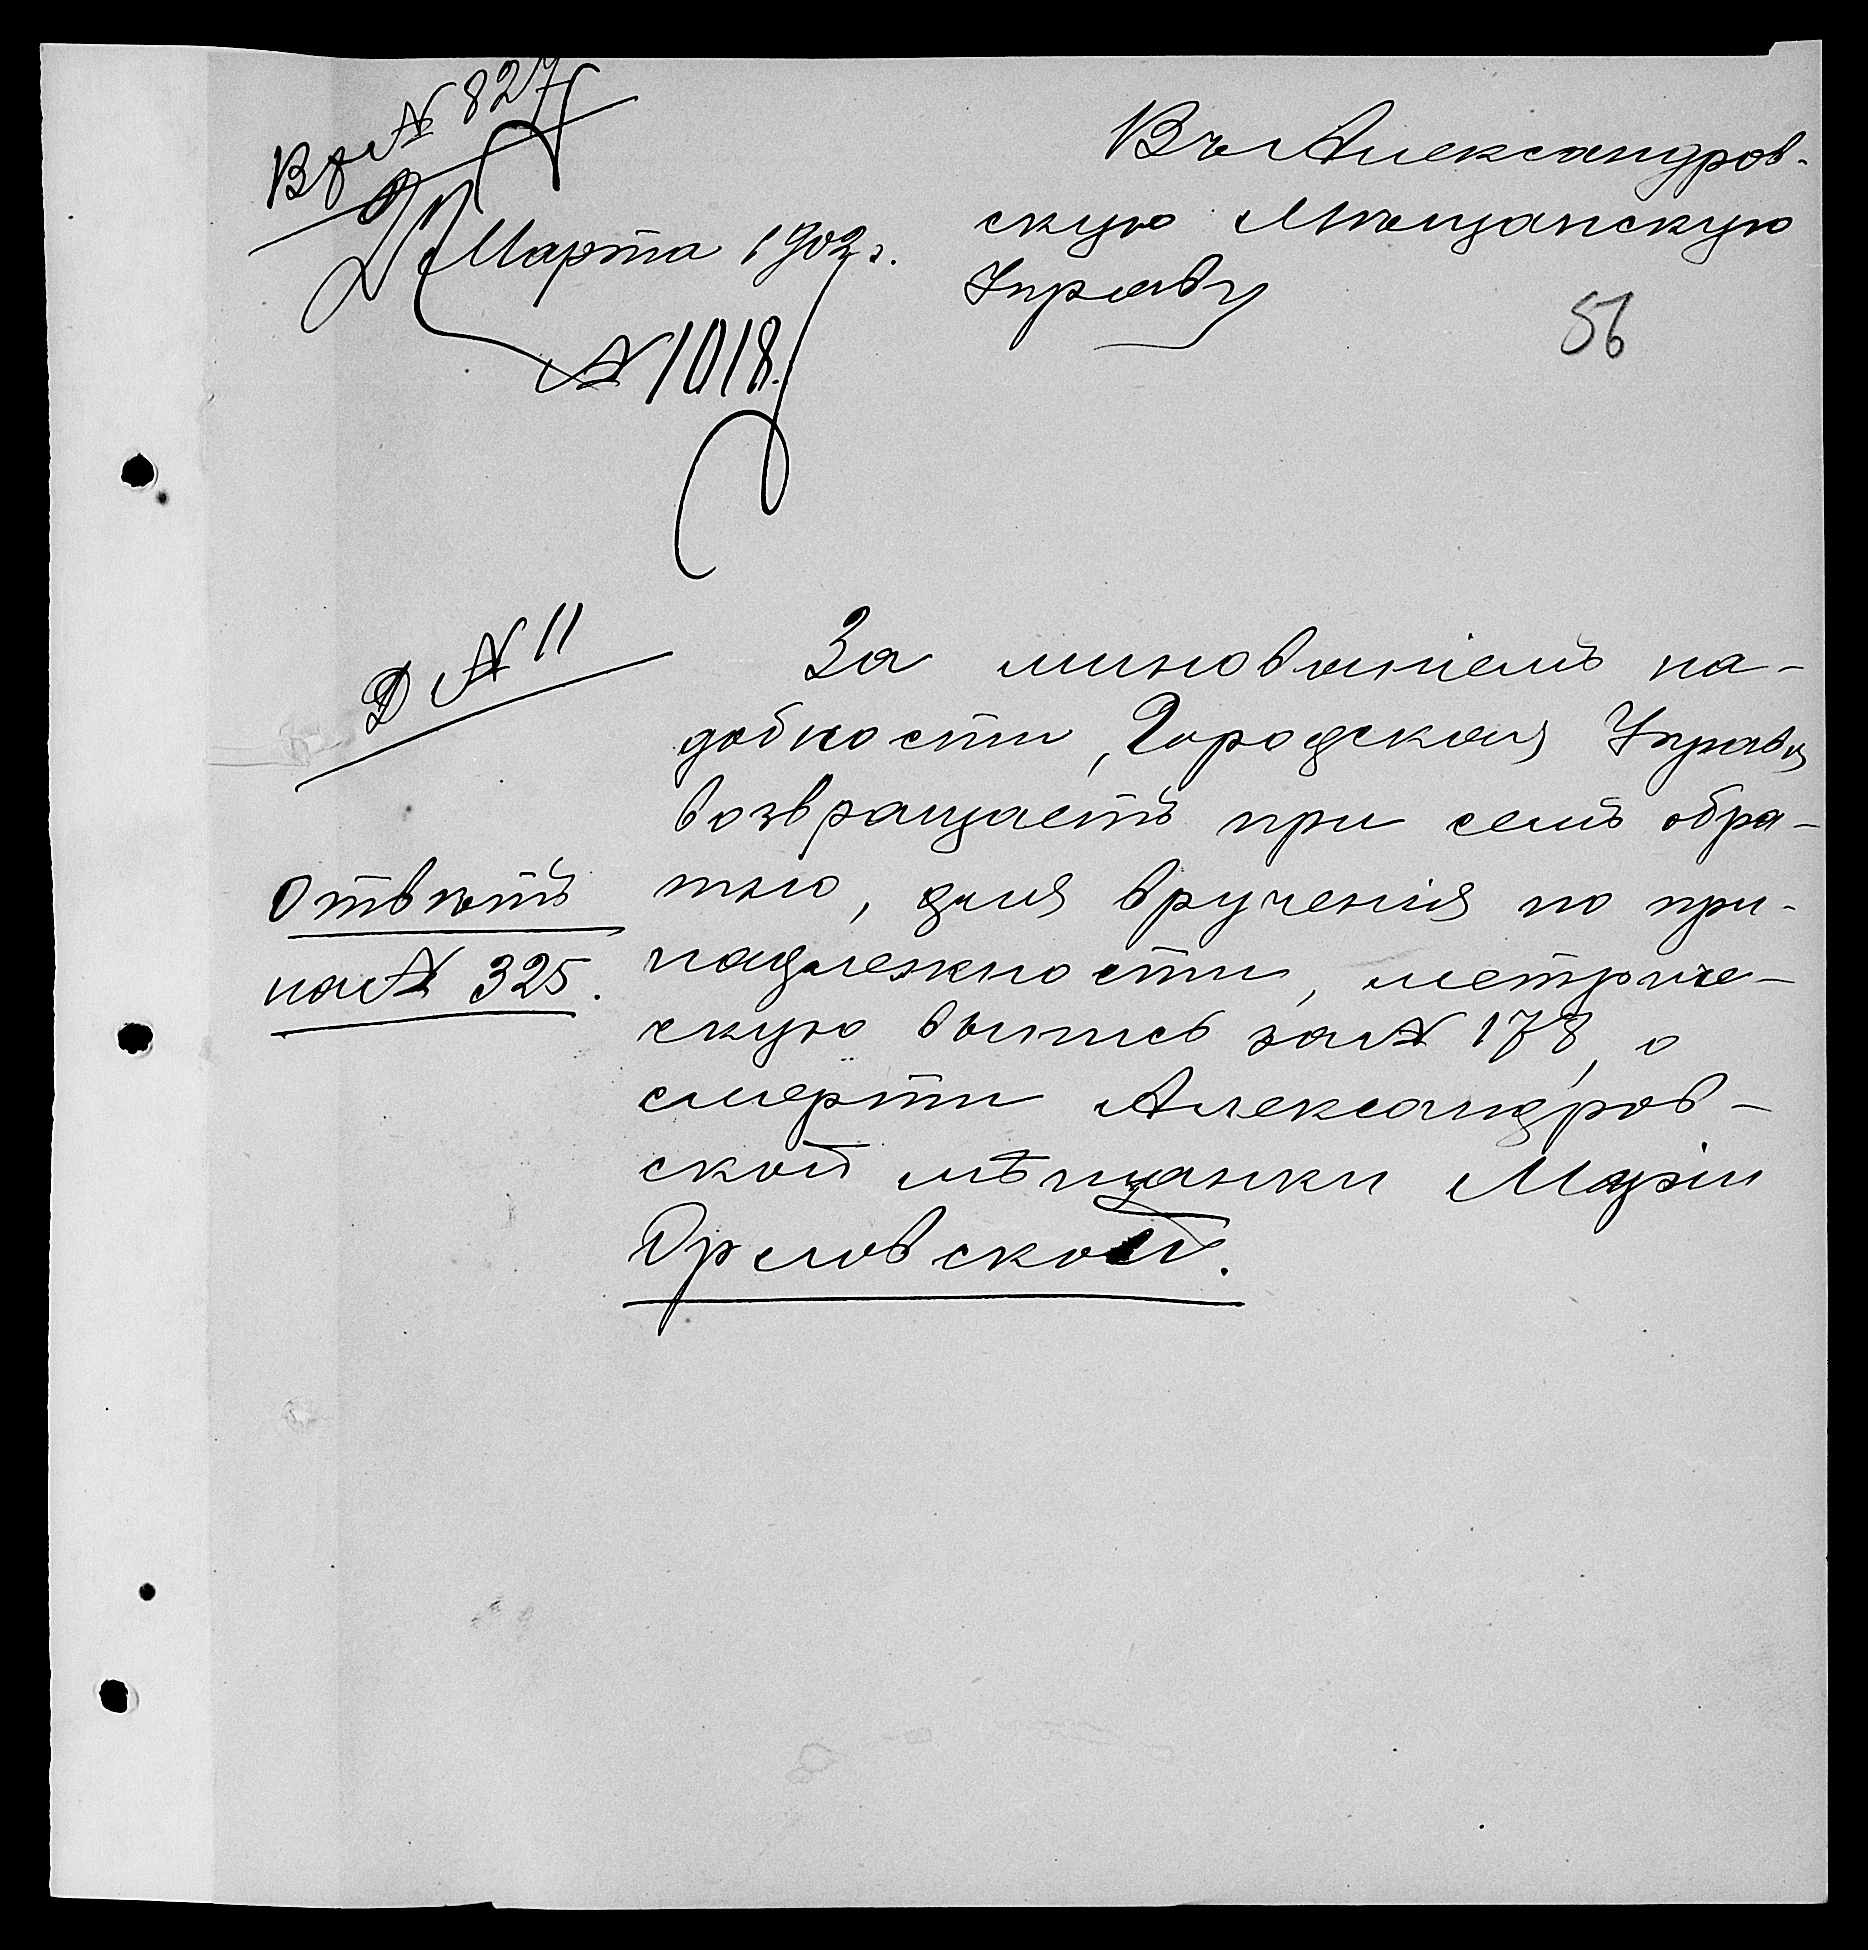 Вх № 827
Марта 1902 г.
№ 1018.
Въ Александров-
скую Мѣщанскую
Управу
56
Д № 11
За минованіемъ на-
добности, Городская Управа
возвращаетъ при семъ обра-
тно, для врученія по при-
надлежности, метриче-
скую выпись за № 178, о
смерти Александров-
ской мѣщанки Маріи
Орловской.
Отвѣтъ
на № 325.